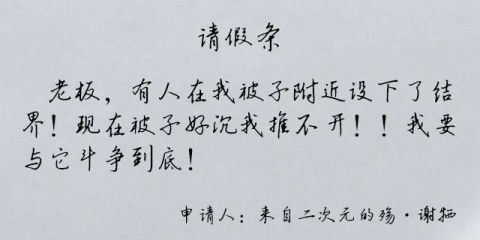 请假条
老板，有人在我被子附近设下了结
界！现在被子好沉我推不开！！我要
与它斗争到底！
申请人：来自二次元的殇·谢牺